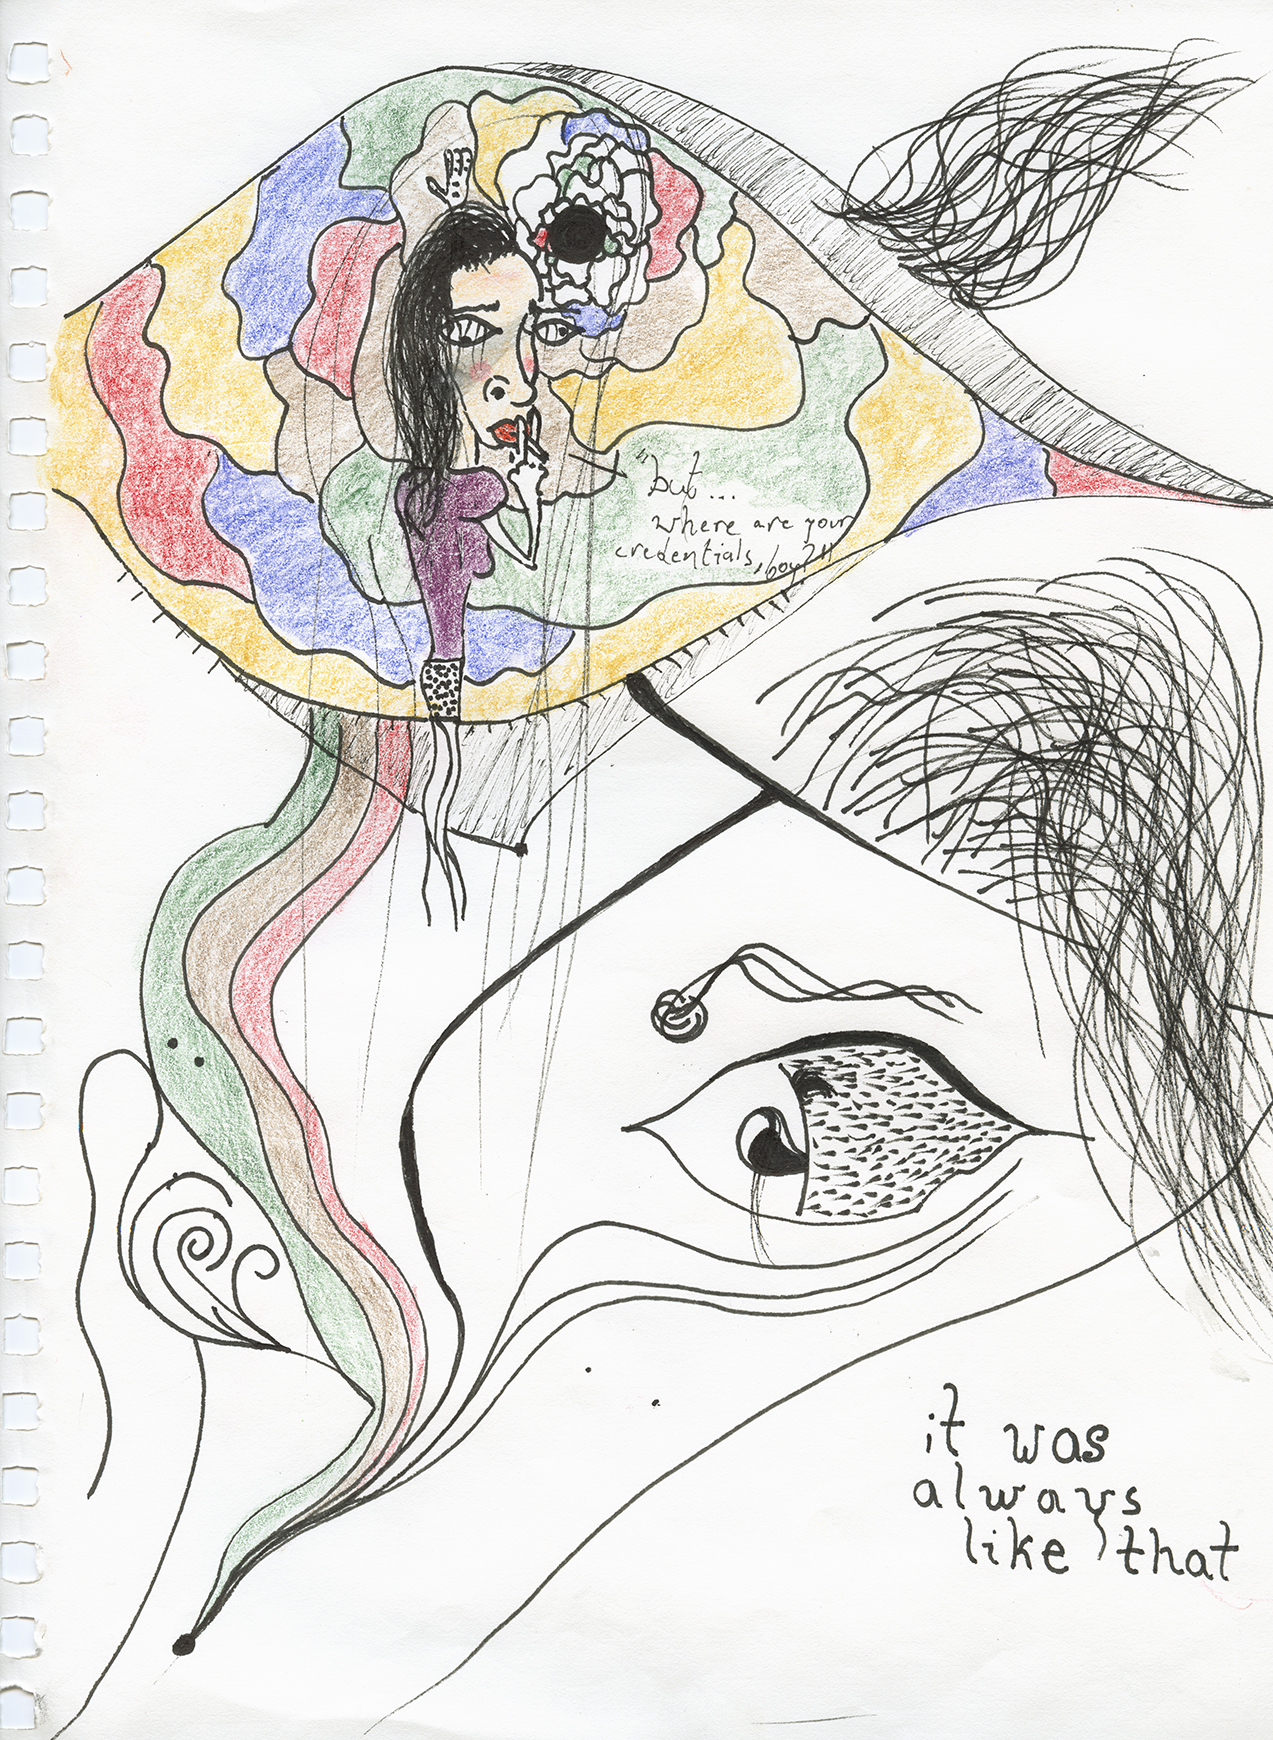 "but...
where are your
credentials, boy?"
it was
always
like that